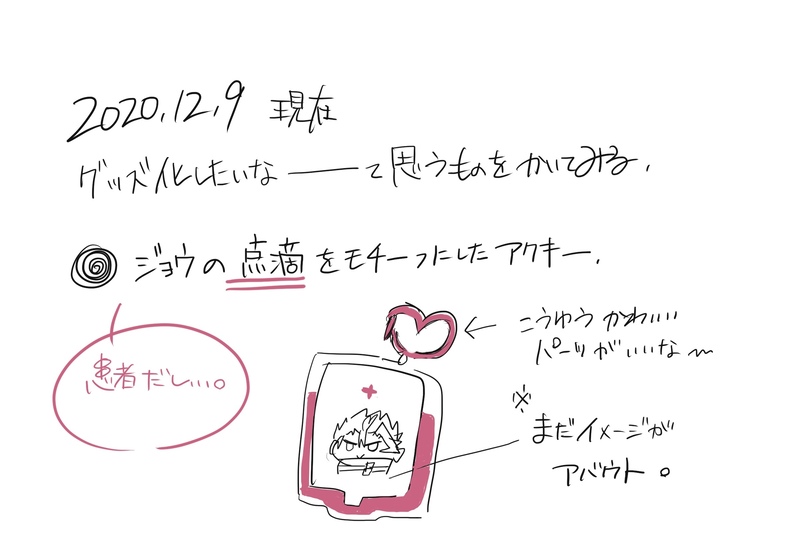 2020.12.9 現在
グッズ化したいな——て思うものをかいてみる.
ジョウの点滴をモチーフにしたアクキー.
患者だしぃ…。
こうゆうかわいい
パーツがいいな〜
※
まだイメージが
アバウト。